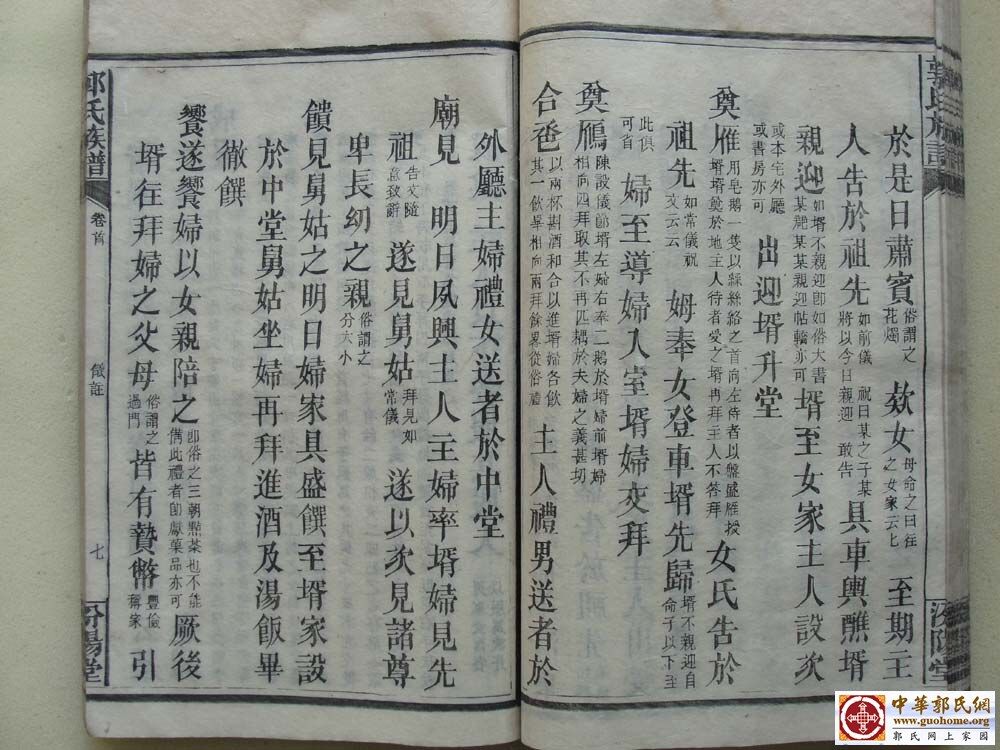 於是日肅賓俗謂之花燭 敎女母命之曰往之女家云七 至期主
人告於祖先如前儀 祝曰某之子某將以今日親迎 敢告 具車輿醮壻
親迎如壻不親迎卽如俗大書某處某某親迎帖轎亦可 壻至女家主人設次
或本宅外廳或書房亦可 出迎壻升堂
奠雁用皂鵝一隻以綵絲絡之首向左侍者以盤盛雁授壻壻奠於地主人待者受之壻再拜主人不答拜 女氏告於
祖先如常儀祝文云云 姆奉女登車壻先歸壻不親迎自命子以下至
此俱可省 婦至導婦入室壻婦交拜
奠鴈陳設儀節壻左婦右奉二鵝於壻婦前壻婦相向四拜取其不再匹耦於夫婦之義甚切
合卺以兩杯斟酒和合以進壻婦各飲其一飲畢相向兩拜餘畧從俗禮 主人禮男送者於
郭氏族譜
汾陽堂
外廳主婦禮女送者於中堂
廟見 明日夙興主人主婦率壻婦見先
祖告文隨意致辭 遂見舅姑拜見如常儀 遂以次見諸尊
卑長幼之親俗謂之分大小
饋見舅姑之明日婦家具盛饌至壻家設
於中堂舅姑坐婦再拜進酒及湯飯畢
徹饌
饗遂饗婦以女親陪之卽俗之三朝點茶也不能備此禮者卽獻菓品亦可 厥後
壻往拜婦之父母俗謂之過門 皆有贄幣豐儉稱家 引
郭氏族譜
卷首
儀註
七
汾陽堂
中華郭氏網
www.guohome.org
郭氏網上家園